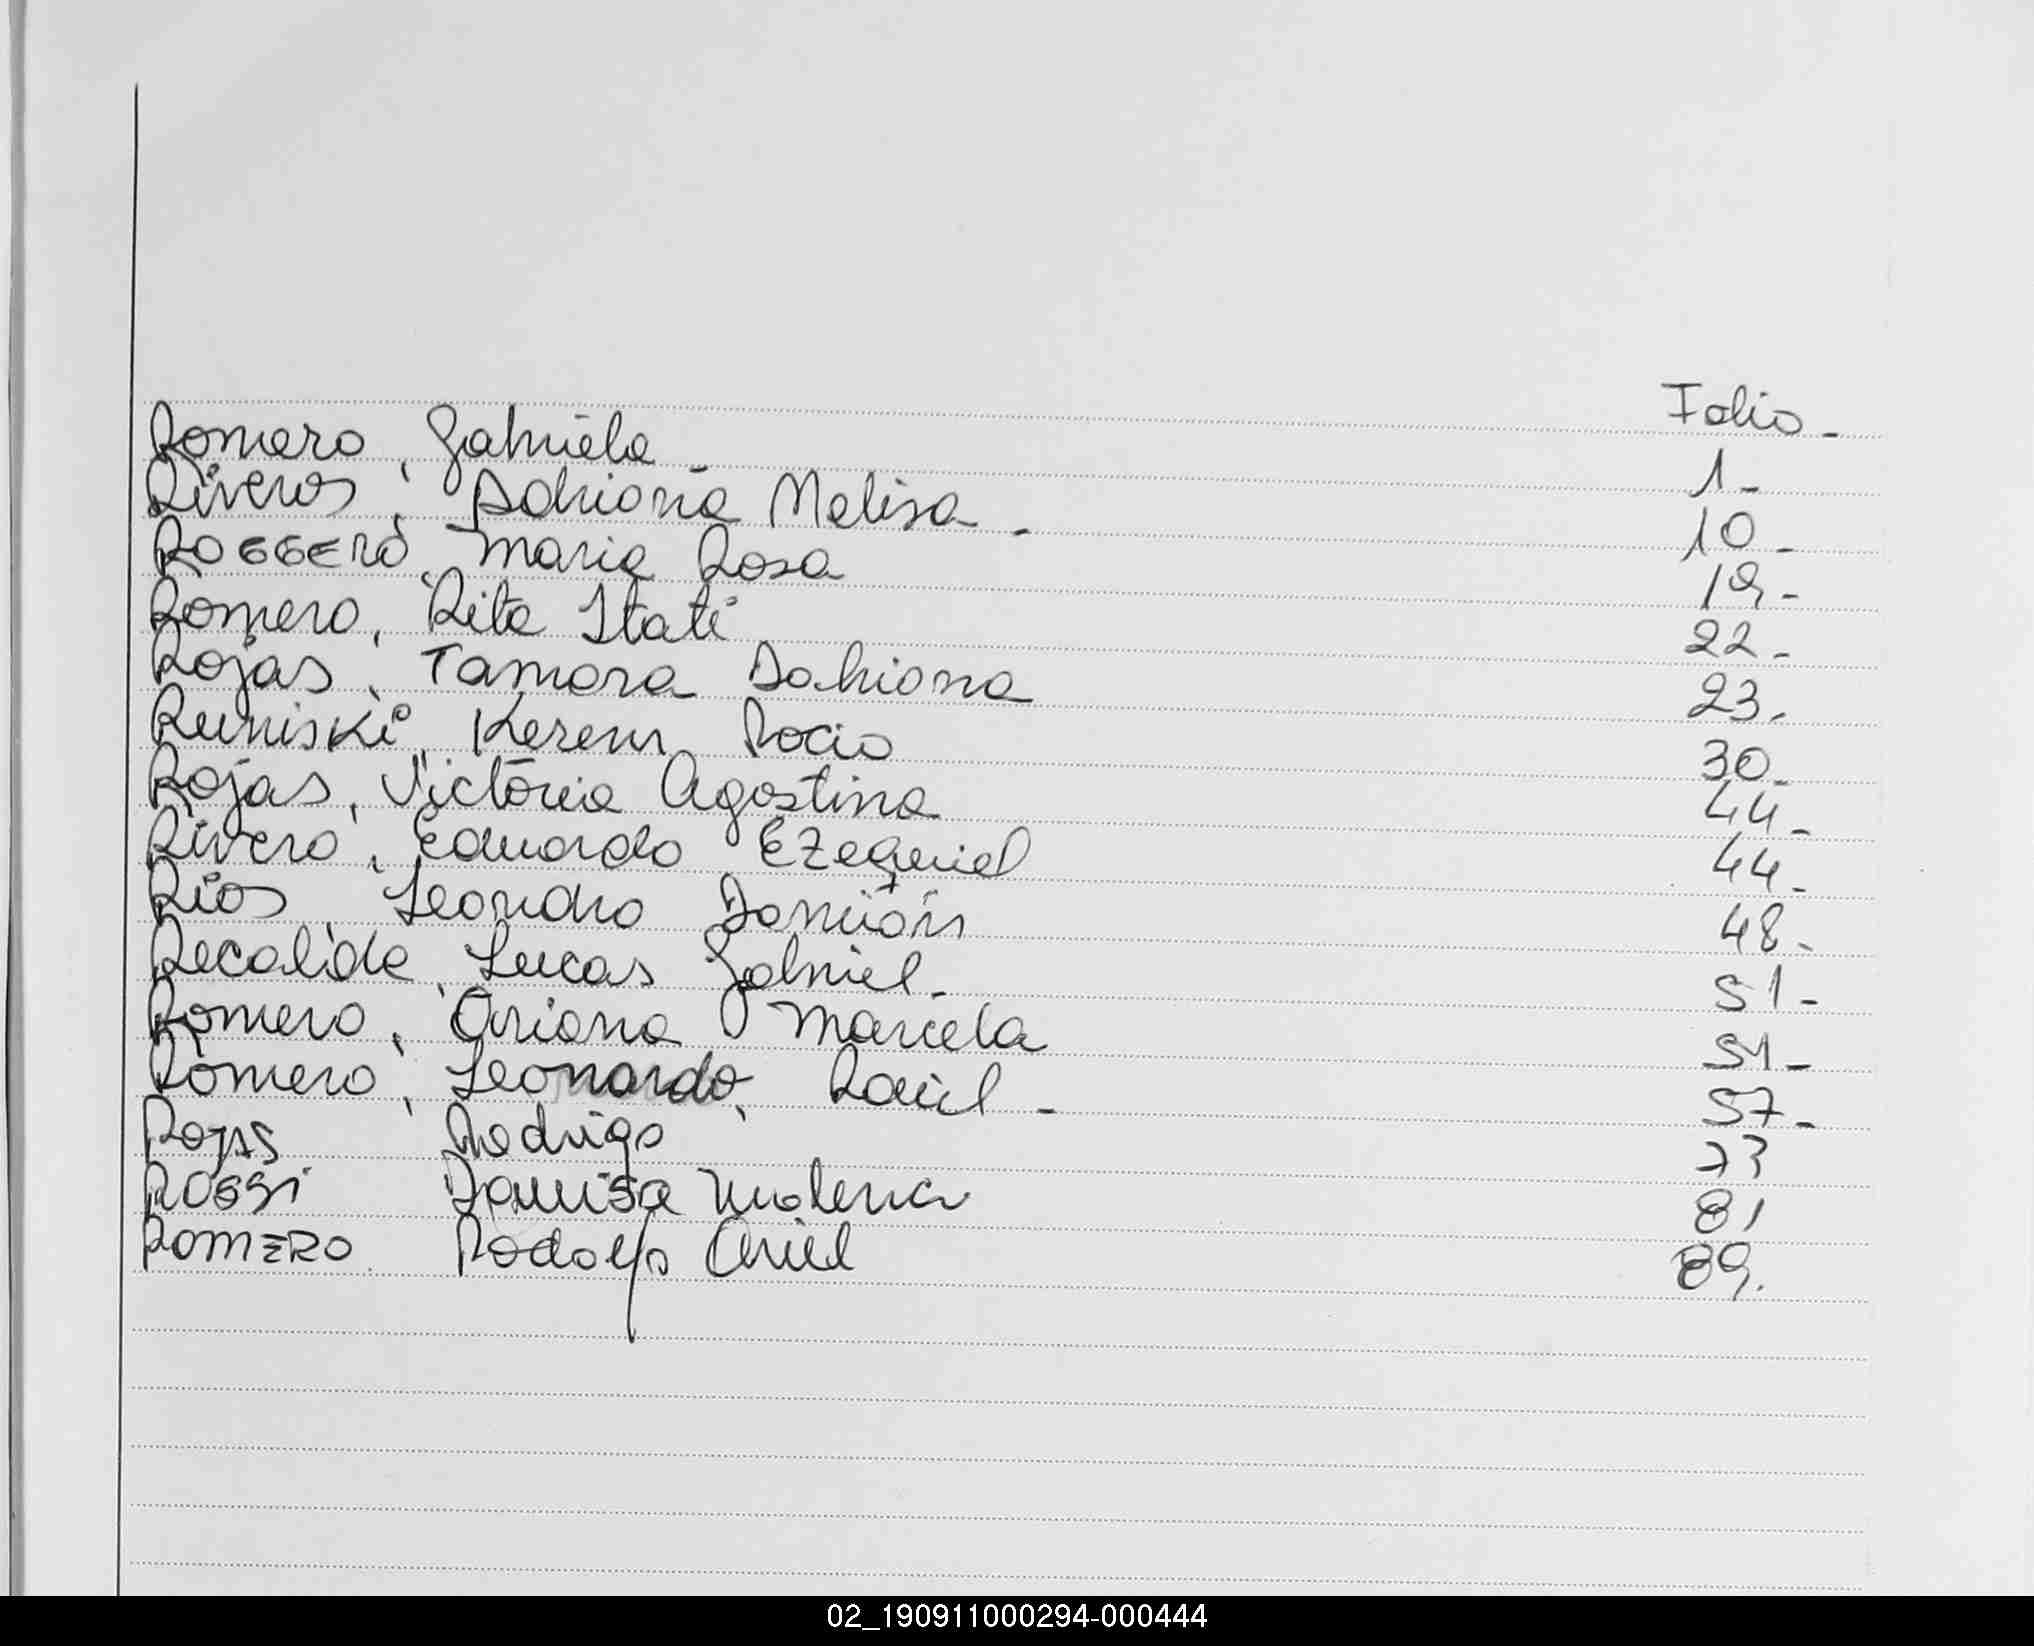 Folio -
Romero, Gabriela - 1 -
Riveros, Adriana Melisa - 10 -
ROGGERO, Maria Rosa 19 -
Romero, Rita Itatí 22 -
Rojas, Tamara Dahiana 23 -
Runiski, Keren Rocio 30 -
Rojas, Victoria Agostina 44 -
Rivero, Eduardo Ezequiel 44 -
Rios, Leandro Damián 48 -
Recalide, Lucas Gabriel - 51 -
Romero, Ariana Mariela 51 -
Romero, Leonardo, Raúl - 57 -
Rojas Rodrigo 73
ROSSI Malena 81
ROMERO Rodolfo Ariel 89.
02_190911000294-000444